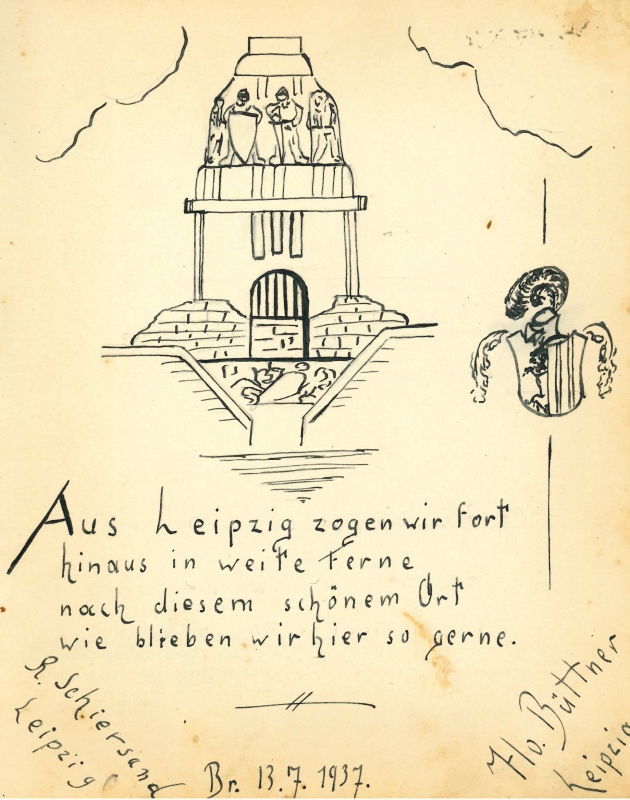 Aus Leipzig zogen wir fort
hinaus in weite Ferne
nach diesem schönem Ort
wie blieben wir hier so gerne.
R. Schiersand
Leipzig
Br. 13.7.1937.
Flo. Büttner
Leipzig